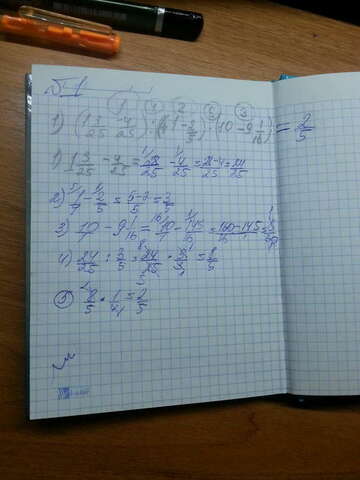 1) (1 3/25 - 4/25) : (1 - 2/5) · (10 - 9 1/16) = 2/5
1) 1 3/25 - 4/25 = 28/25 - 4/25 = 28-4/25 = 24/25
2) 1 - 2/5 = 5-2/5 = 3/5
3) 10 - 9 1/16 = 10/1 - 145/16 = 160-145/16 =
4) 24/25 : 3/5 = 24/25 · 5/3 = 8/5
5) 8/5 · 1/4 = 2/5